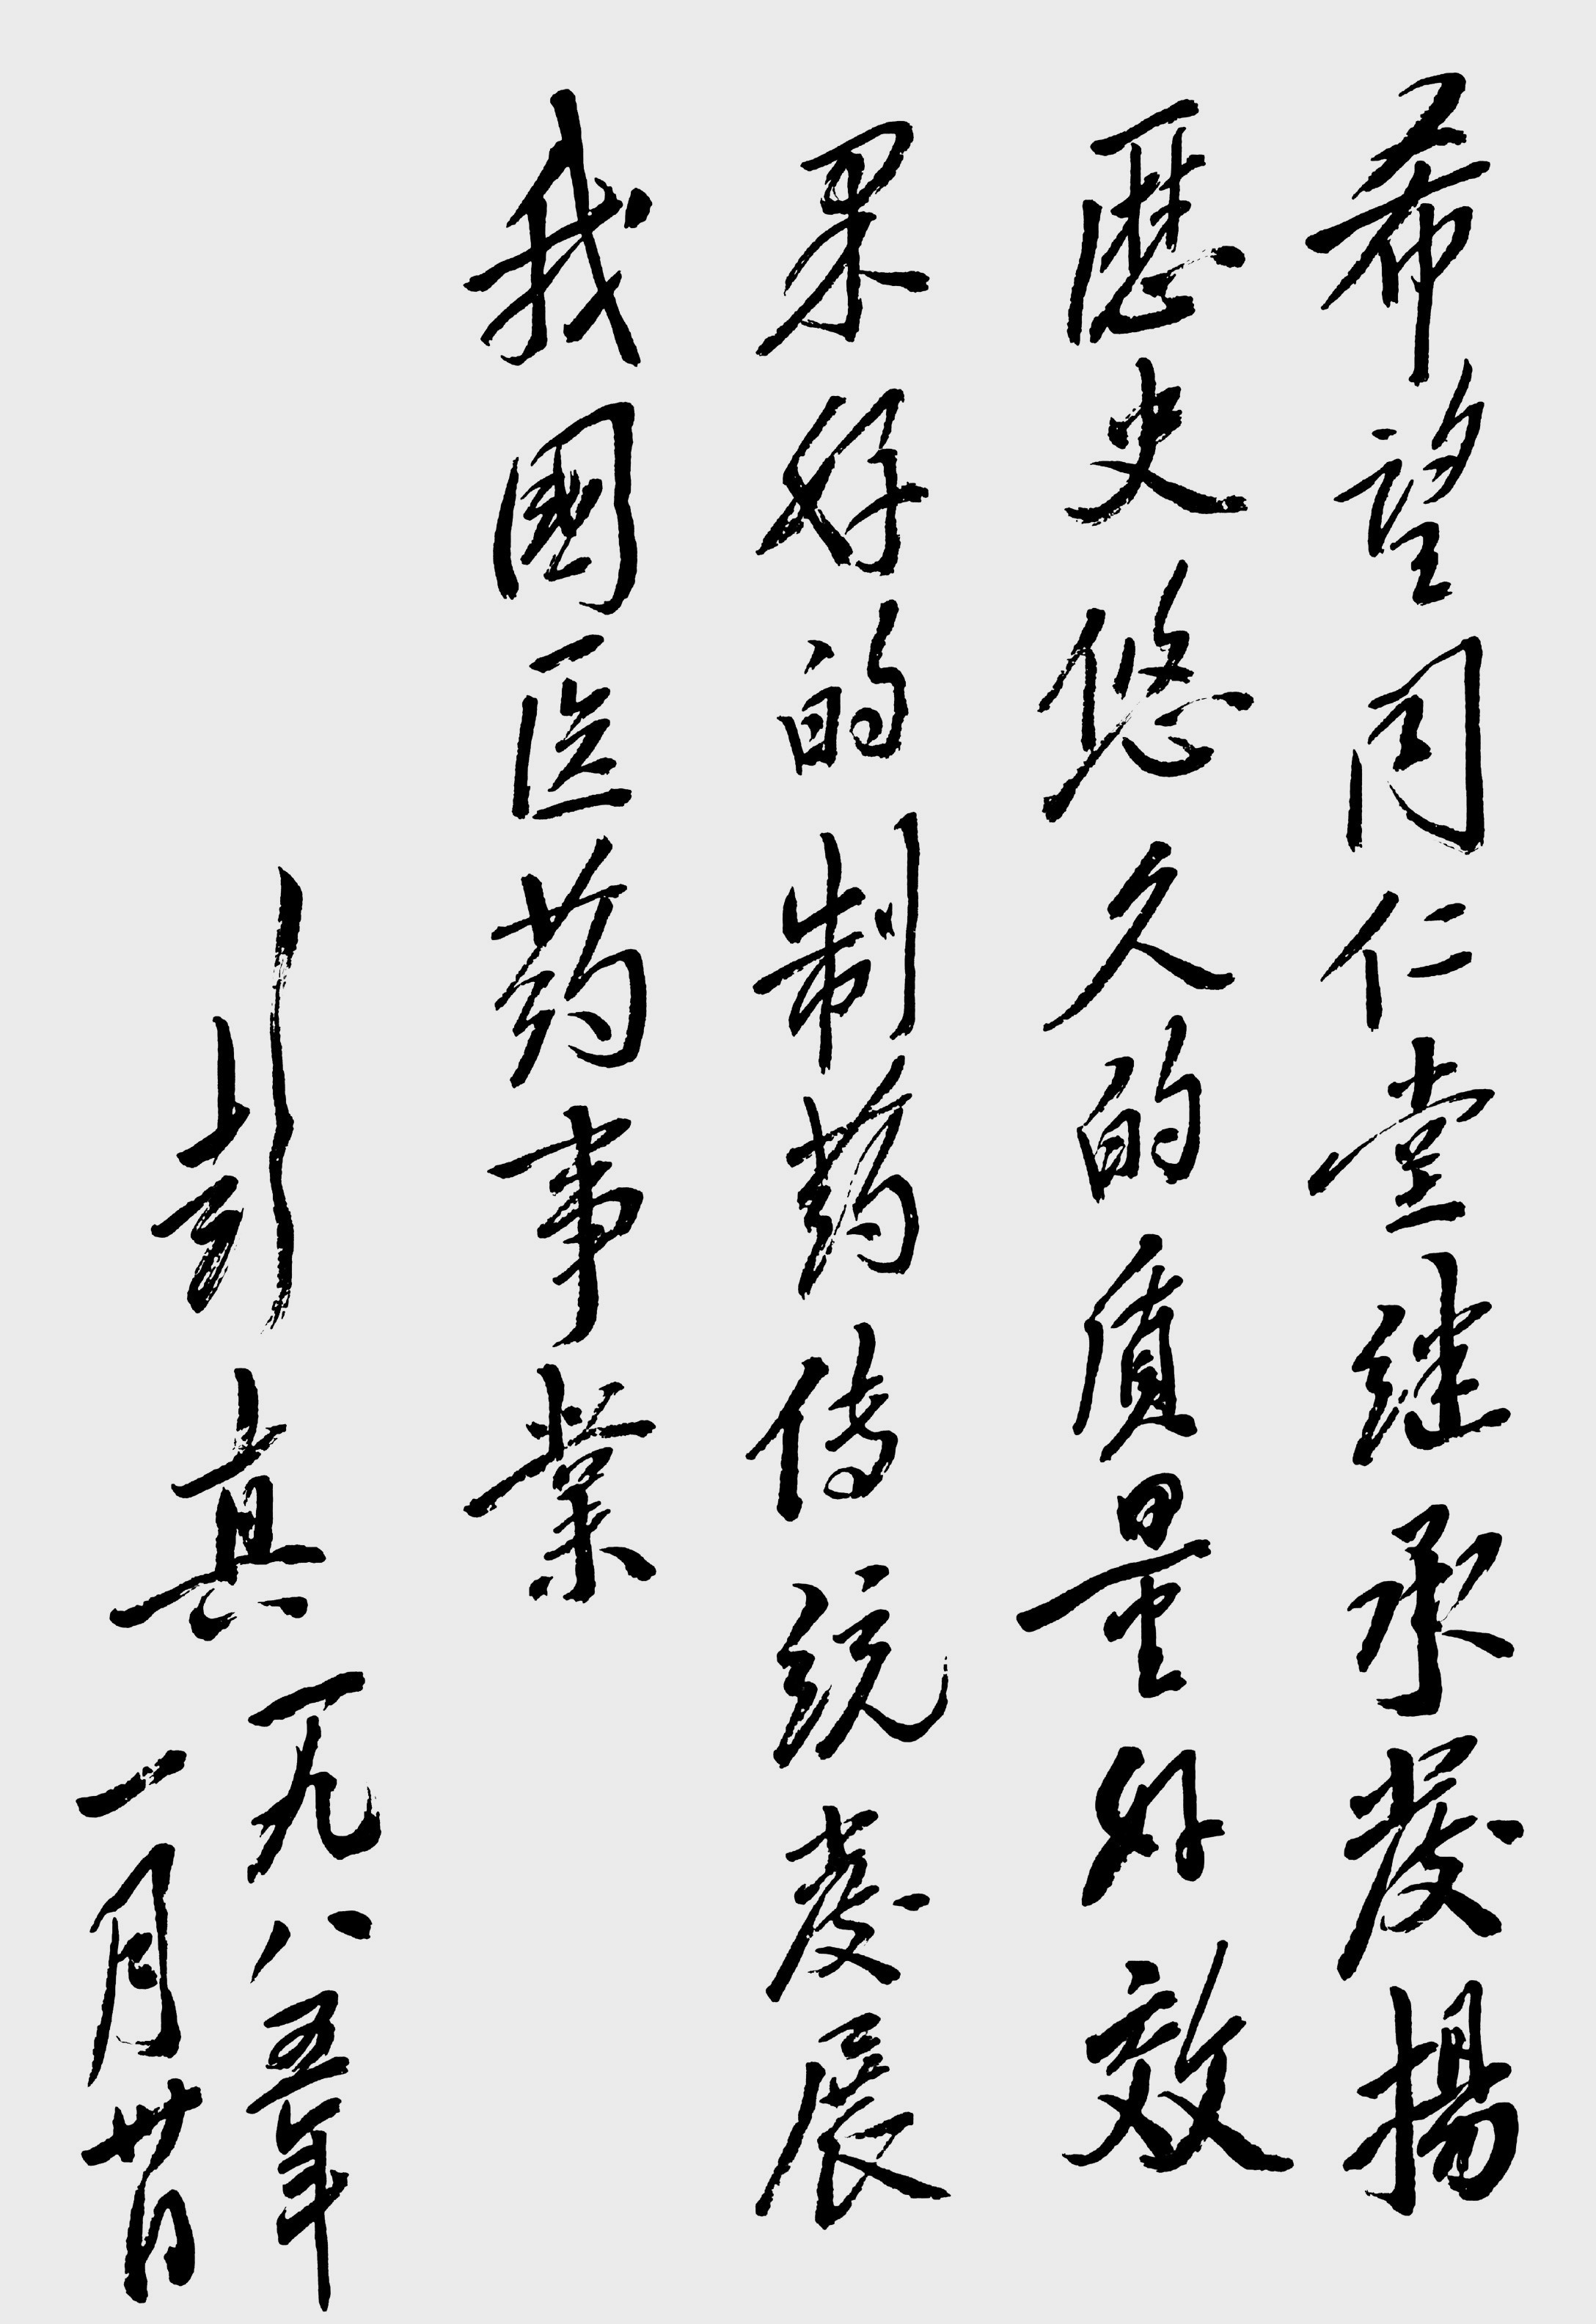 希望同仁堂继承发扬
历史悠久的质量好效
果好的制药传统发展
我國医药事業
彭真
一九八五年
一月廿日